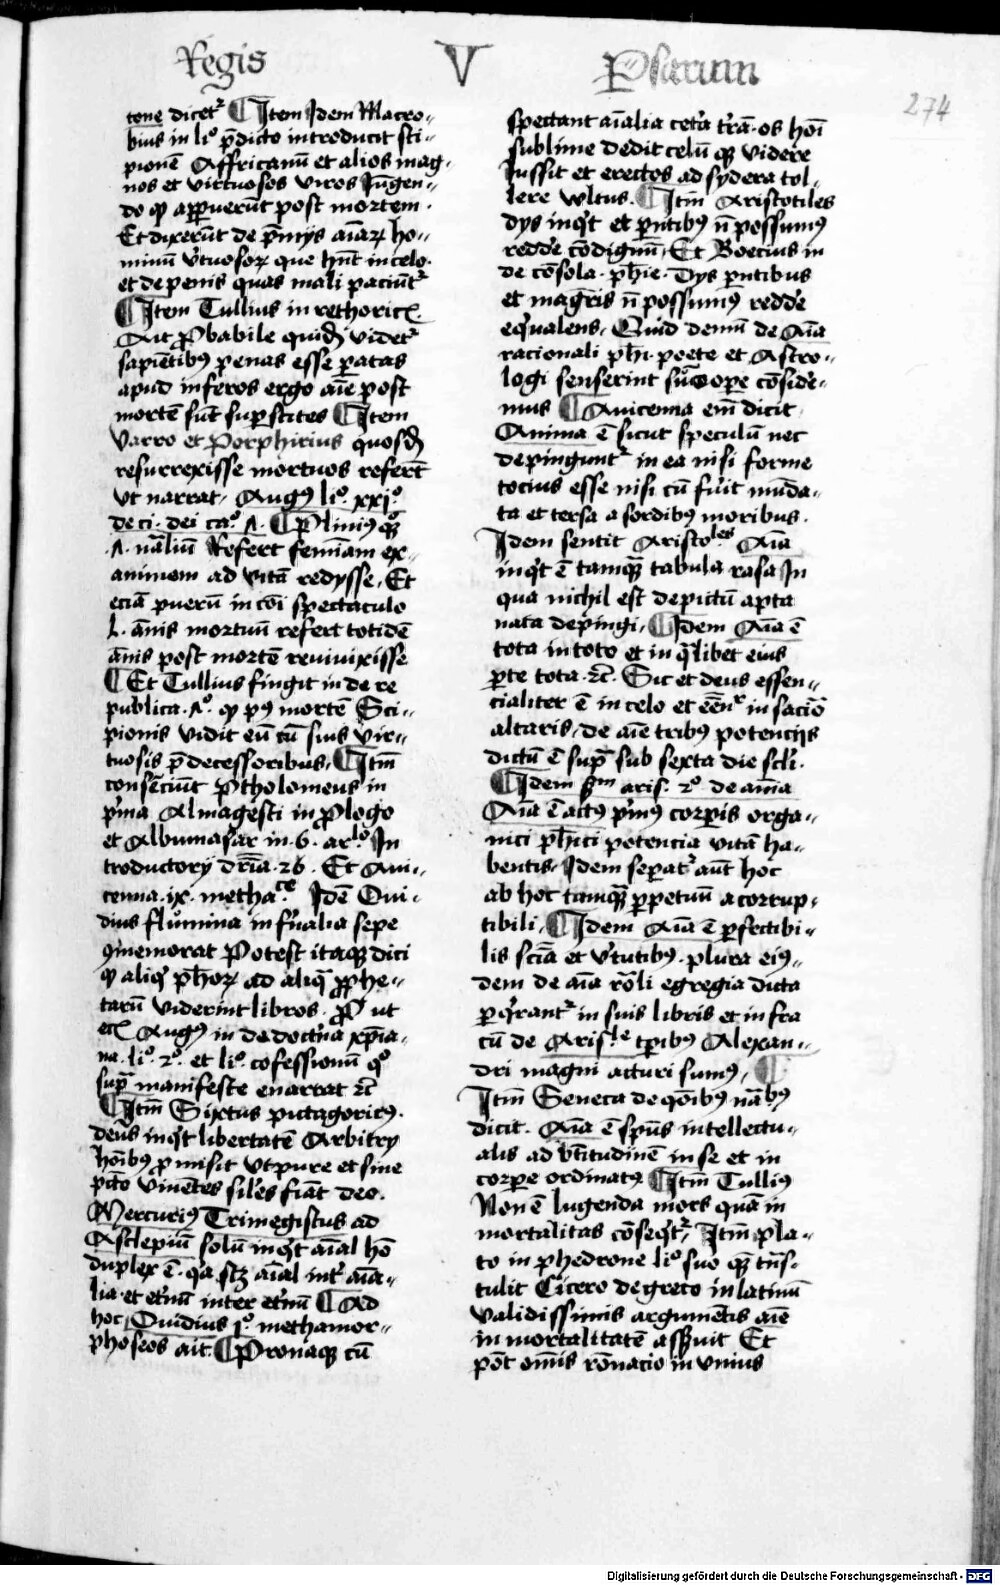 Regis V Psarum
274
tone dicet᷑ Itm Idem Macro-
bius in li° p̄dicto introducit sci-
pionē Affricanū et alios mag-
nos et virtuosos viros Iūgen-
do ꝙ appuerūt post mortem.
Et dixerūt de p̄mijs aīarꝝ ho-
minū v̓tuosoꝝ que hn̄t in celo.
et de penis quas mali paciūt᷑
Item Tullius in rethoricꝭ
Ait ꝓbabile quidē videt᷑
sapiētibꝰ penas esse ꝑatas
apud inferos ergo aīe post
mortē sūt suꝑstites Item
Varro et Porphirius quosdā
resurrexisse mortuos referūt
ut narrat Augꝰ li°. xxj°.
de ci. dei ca°. Pliniꝰ
nāliū Refert feminam ex-
animem ad vitā redysse. Et
eciā puerū in cōi spectaculo
l. ānis mortuū refert totidē
ānis post mortē revivixisse
Et Tullius fingit in de re
publica. ꝙ pꝰ mortē Sci-
pionis vidit eū cū suis vir-
tuosis p̄decessoribus. Itm̄
consēciūt Ptholomeus in
p̓ma Almagesti in ꝓlogo
et Albumasar in .6. ar^lo. In
troductory dr̄ia .26. Et Aui-
cenna .ix. metha^ce. Idē Oui-
dius flumina infernalia sepe
ꝯmemorat Potest itaqꝫ dici
ꝙ aliqͥ ph̄oꝝ ad aliqͣ ꝓphe-
tarū viderint libros. ut
Augꝰ in de doctrīa xp̄ia-
na. li°. 2°. et li°. cofessionū
supͣ manifeste enarrat ⁊c̄
Itm̄ Sixtus pictagoricꝰ.
deus inqͥt libertatē Arbitry
hōibꝰ ꝓmisit ut pure et sine
pctō viuētes siles fiāt deo.
Mercuriꝰ Trimegistus ad
Asclepiū solū inqͥt aīal hō
duplex ē. qͥa scꝫ aīal int̓ aīa-
lia. et etnū inter etnū Ad
hoc. Ouidius j°. methamor-
phoseos ait. Pronaqꝫ cū
spectant aīalia cetā tr̄ā. os hoī
sublime dedit celū qꝫ videre
Iussit et erectos ad sydera tol-
lere vultus. Itm̄ Aristotiles
dys inqͥt et parētibꝰ n̄ possumꝰ
reddē cōdignū. Et Boecius in
de cōsola. ph̄ie. Dys parētibus
et magr̄is n̄ possumꝰ reddē
equalens. Quid demū de aīa
racionali ph̄i. poete et Astro-
logi senserint supͣ ope cōside-
mus Auicenna em̄ dicit
Anima ē sicut speculū nec
depingunt᷑ in ea nisi forme
tocius esse nisi cū fuīt mūda-
ta et tersa a sordibꝰ moribus.
Idem sentit Aristo^les Aīa
inqͥt ē tamqͣ tabula rasa In
qua nichil est depictū apta
nata depingi. Idem Aīa ē
tota in toto et in qͣlibet eius
ꝑte tota. ⁊c̄. Sic et deus essen-
cialiter ē in celo et
altaris. de aīe tribꝰ potencijs
dictū ē supͣ sub sexta die scli.
Idem sm̄ aris. 2°. de anīa
Aīa ē actꝰ p̓mꝰ corꝑis orga-
nici ph̄ici potencia vitā ha-
bentis. Idem seꝑat᷑ aūt hoc
ab hoc tamqͣ ꝑpetuū a corrup-
tibili. Idem Aīa ē ꝑfectibi-
lis sciā et v̓tutibꝰ. plura eiꝰ-
dem de aīa rōli egregia dicta
in suis libris et infra
cū de Aris^le tꝑibꝰ Alexan-
dri magni acturi sumꝰ.
Itm̄ Seneca de qōibꝰ nālibꝰ
dicit. Aīa ē spūs intellectu-
alis ad bt̄itudinē in se et in
corpe ordinatꝰ Itm̄ Tulliꝰ
Non ē lugenda mors quā in
mortalitas cōseqͥt᷑. Itm̄ pla-
to in phedrone li° suo qꝫ tn̄s-
tulit Cicero de greco in latinū
validissimis argumētis aīe
in mortalitatē assꝑuit Et
pōt omīs rōnatio in vnius
Digitalisierung gefördert durch die Deutsche Forschungsgemeinschaft - DFG